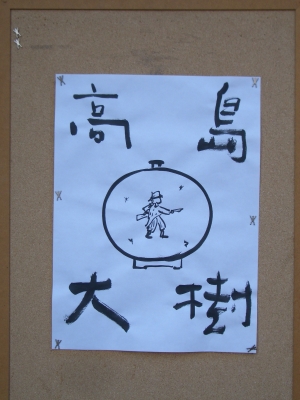 高島
大樹